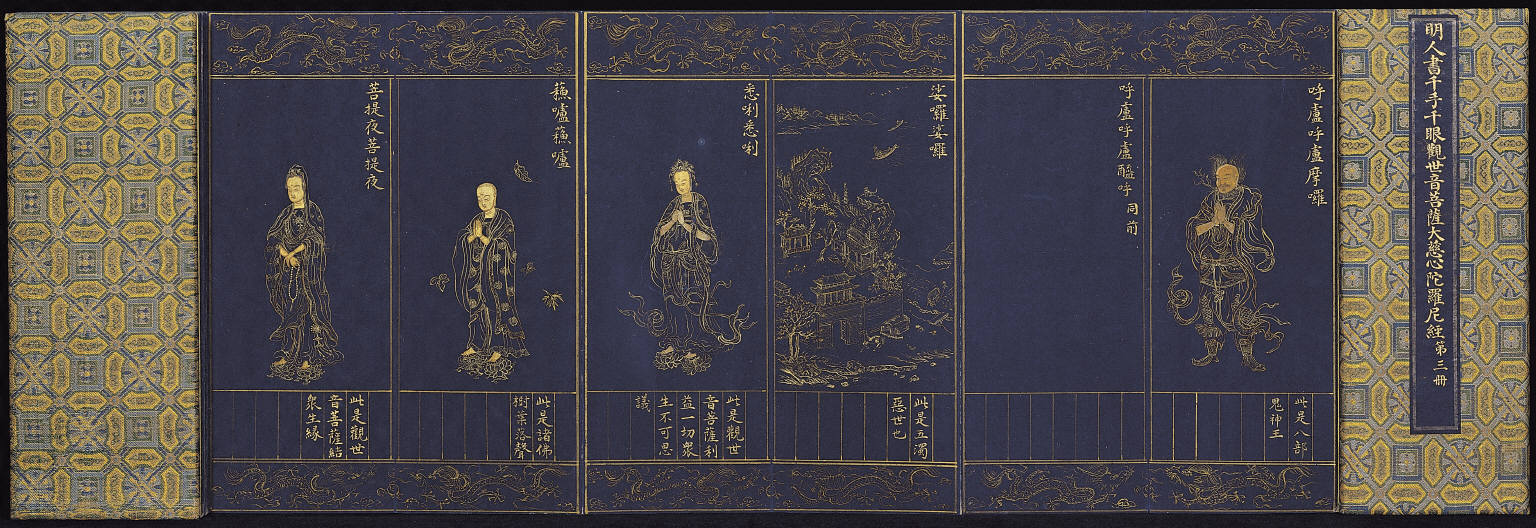 明人書千手千眼觀世音菩薩大慈心陀羅尼經第三冊
呼盧呼盧摩囉
此是八部
鬼神王
呼盧呼盧醯呼 同前
娑囉娑囉
此是五濁
惡世也
悉唎悉唎
此是觀世
音菩薩利
益一切衆
生不可思
議
蘓嚧蘓嚧
此是諸佛
樹葉落聲
菩提夜菩提夜
此是觀世
音菩薩結
衆生緣